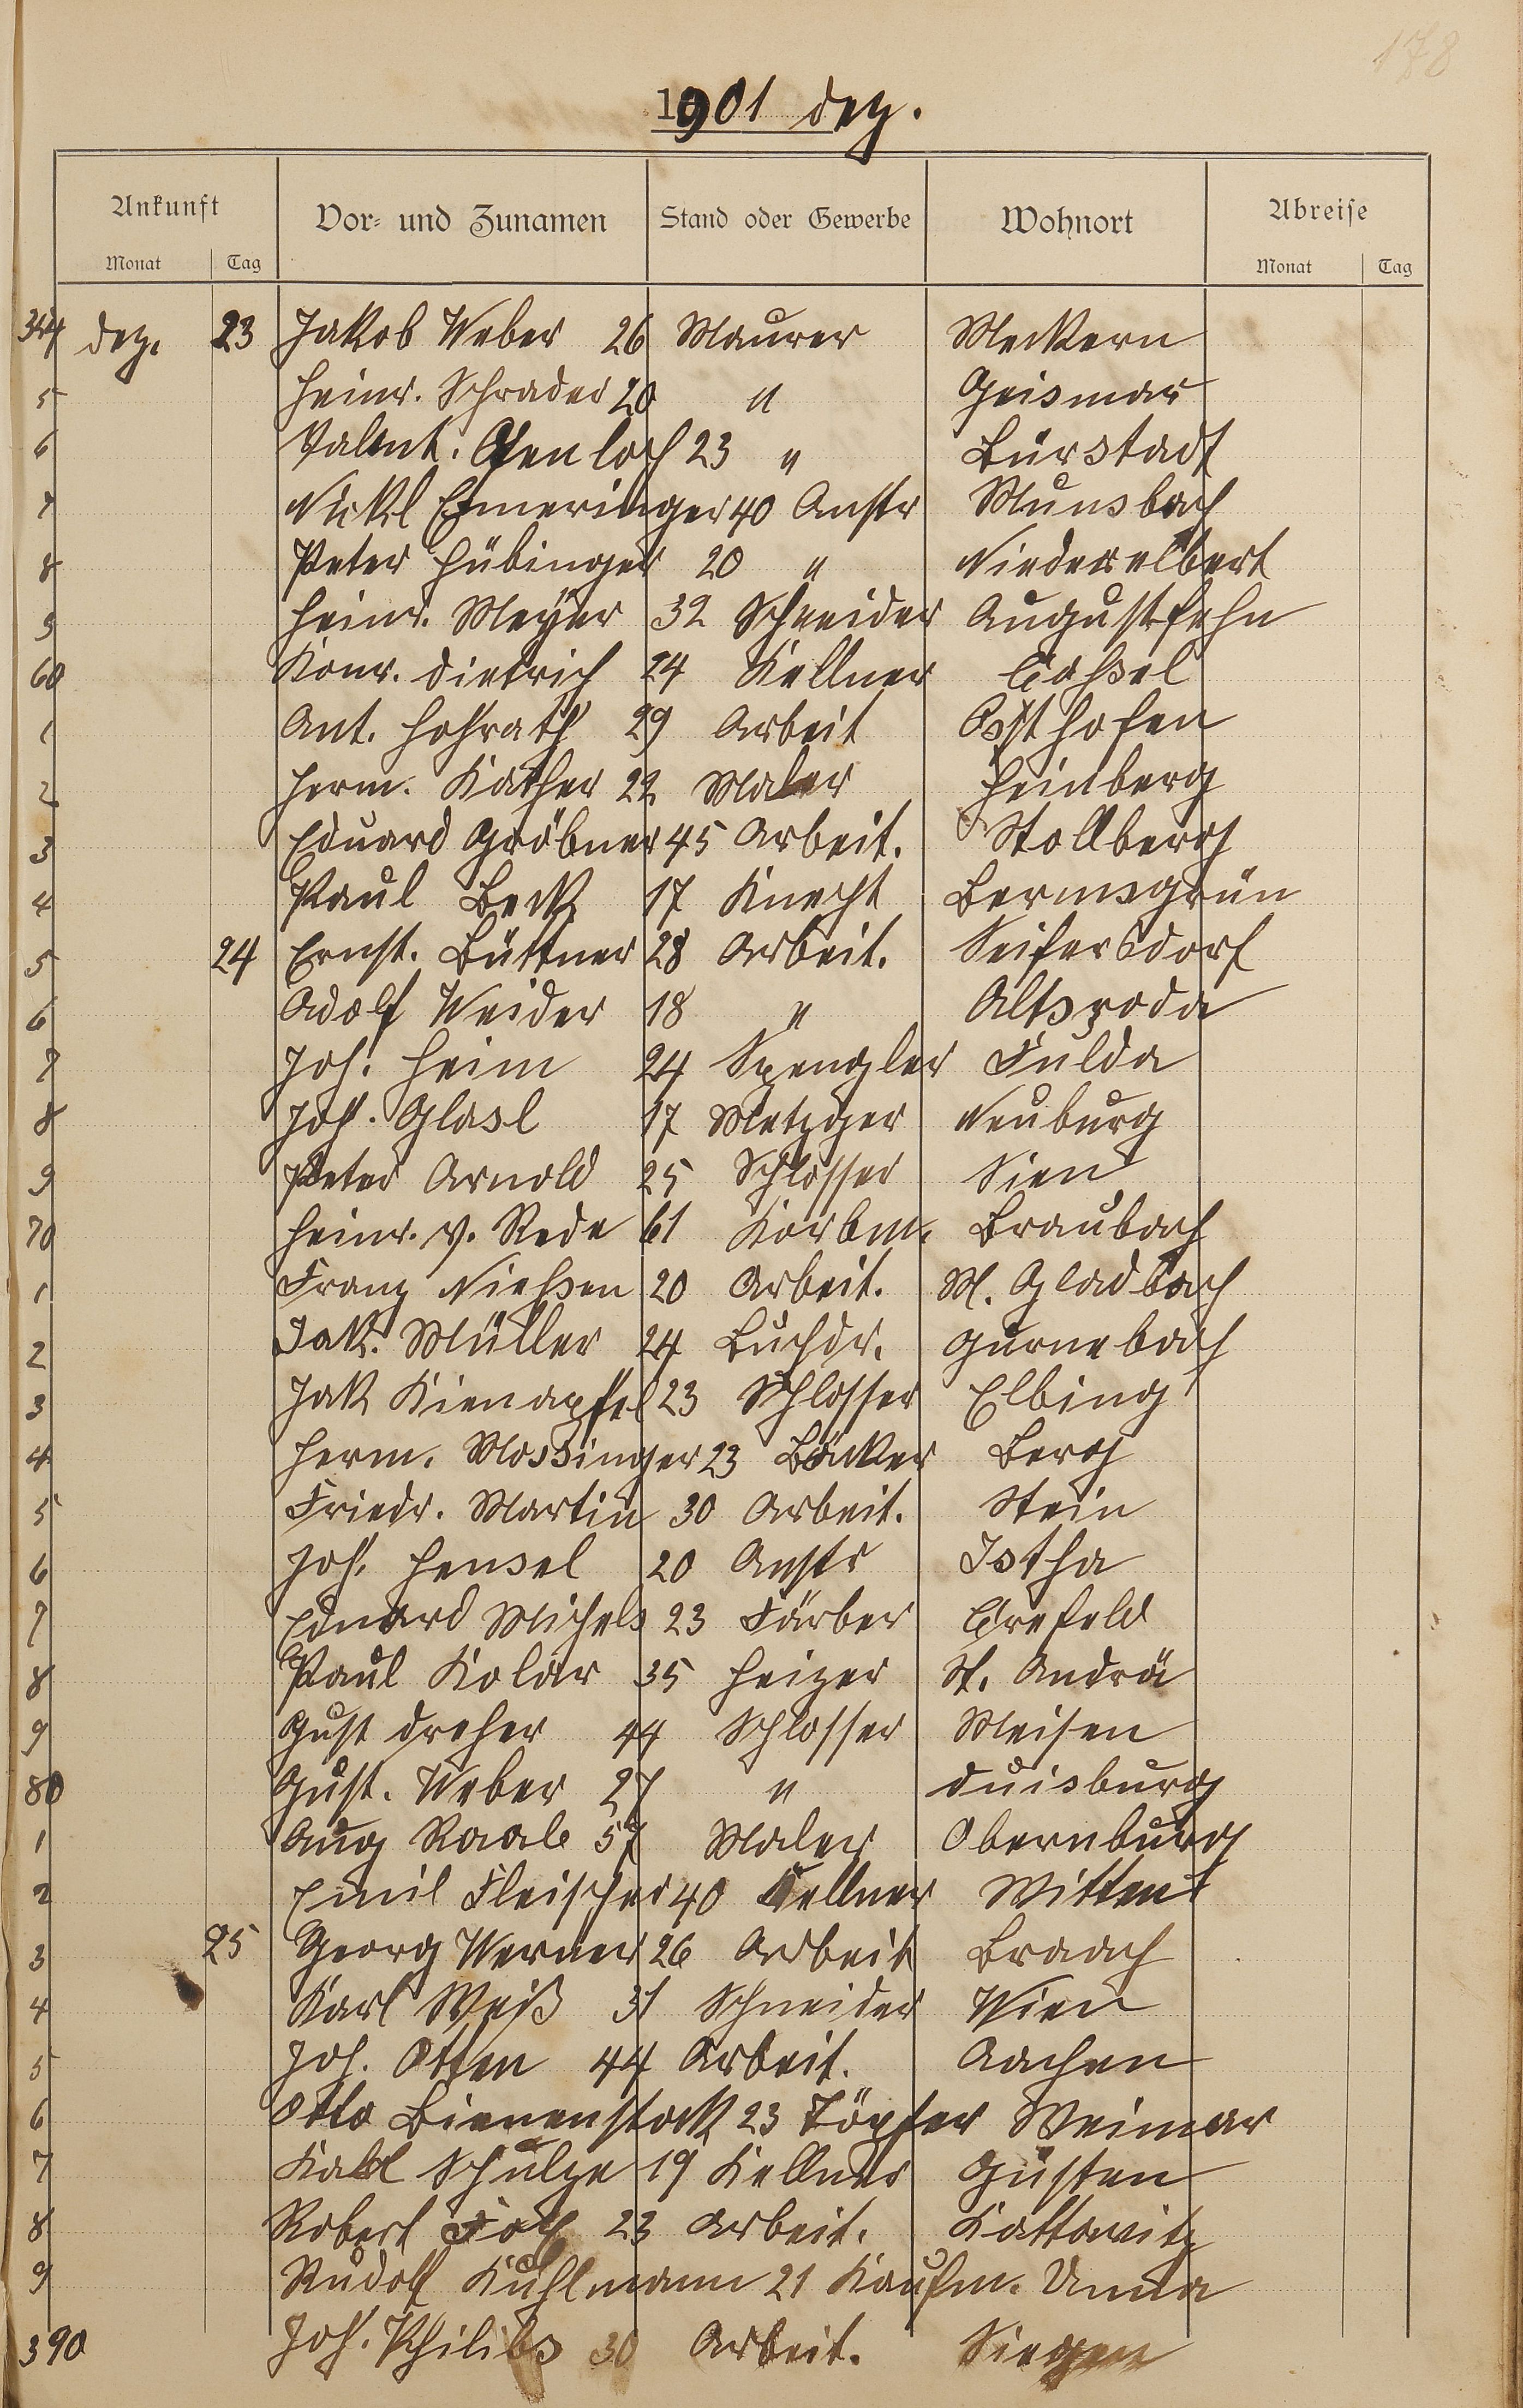 178
1901 Dez.
Ankunft Vor- und Zunamen Stand oder Gewerbe Wohnort Abreise
Monat Tag Monat Tag
354 Dez. 23 Jakob Weber 26 Maurer Meckern
5 Heinr. Schrader 20 " Geismar
6 Valent. Ofenloch 23 " Bürstadt
7 Nickl Emeringer 40 Anstr Munsbach
8 Peter Hübinger 20 " Niederelbert
9 Heinr. Meyer 32 Schneider Augustfehn
60 Konr. Dietrich 24 Kellner Caßsel
1 Ant. Hohrath 29 Arbeit Osthofen
2 Herm. Kather 22 Maler Heinberg
3 Eduard Gröbner 45 Arbeit. Stollberg
4 Paul Beck 17 Knecht Bermsgrün
5 24 Ernst. Büttner 28 Arbeit. Seifersdorf
6 Adolf Weider 18 " Altsroda
7 Joh. Heim 24 Spengler Fulda
8 Joh. Glasl 17 Metzger Neuburg
9 Peter Arnold 25 Schlosser Sien
70 Heinr. v. Rede 61 Korbm. Braubach
1 Franz Nießen 20 Arbeit. M. Gladbach
2 Jak. Müller 24 Buchdr. Gurnebach
3 Jak Kienapfel 23 Schlosser Elbing
4 Herm. Mossinger 23 Bäcker Berg
5 Friedr. Martin 30 Arbeit. Stein
6 Joh. Hensel 20 Anstr Istha
7 Eduard Michels 23 Färber Crefeld
8 Paul Kolar 35 Heizer St. Andrä
9 Gust Dreher 44 Schlosser Meisen
80 Gust. Weber 27 " Duisburg
1 Aug Raab 57 Maler Obernburg
2 Emil Fleischer 40 Kellner Witten
3 25 Georg Werner 26 Arbeit Braach
4 Karl Weiß 31 Schneider Wien
5 Joh. Otten 44 Arbeit. Aachen
6 Otto Bienenstock 23 Töpfer Weimar
7 Karl Schulze 19 Kellner Güsten
8 Robert 23 Arbeit. Kattowitz
9 Rudolf Kuhlmann 21 Kaufm. Unna
390 Joh. Philibs 30 Arbeit. Siegen